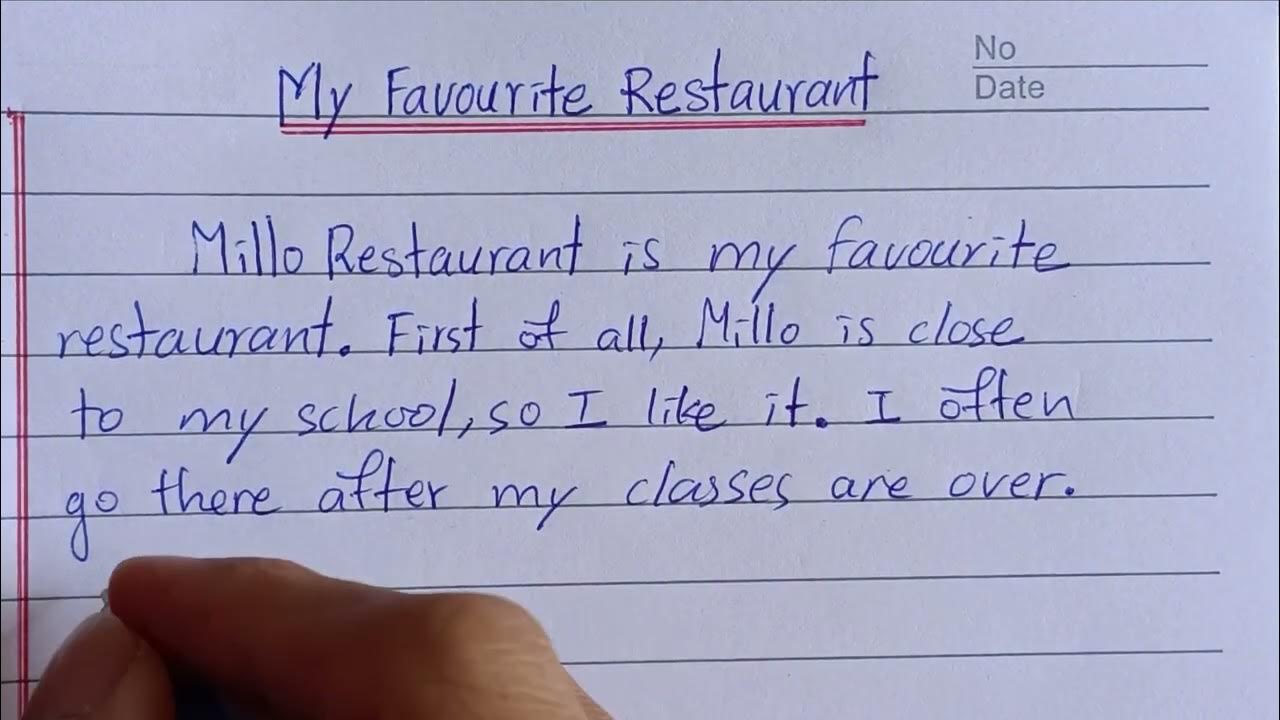 No
Date
My Favourite Restaurant
Millo Restaurant is my favourite
restaurant. First of all, Millo is close
to my school, so I like it. I often
go there after my classes are over.